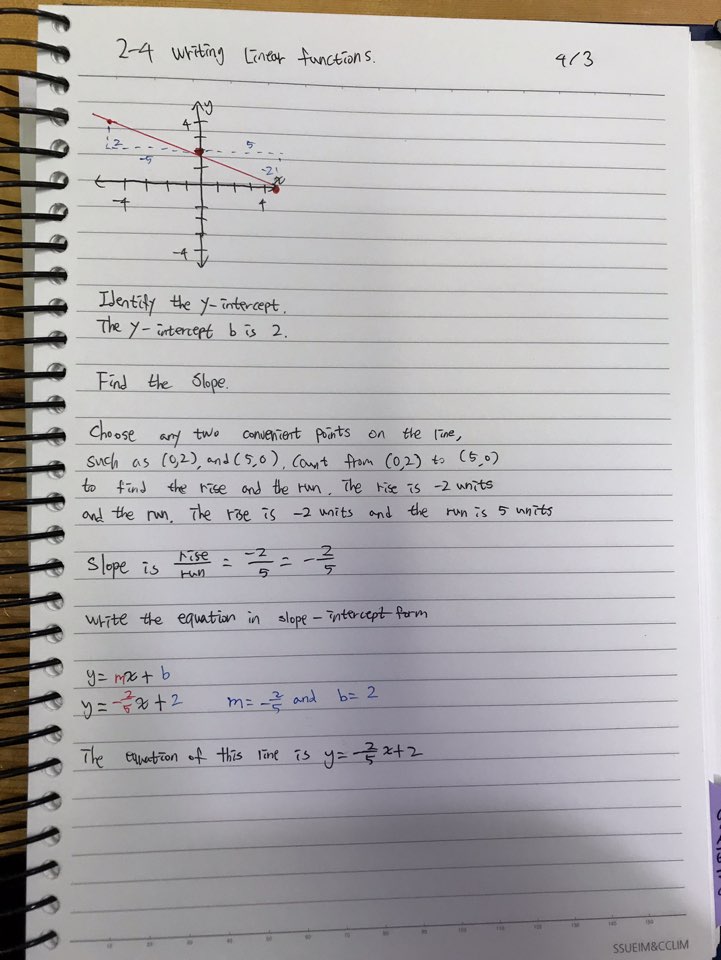 2-4 Writing Linear functions. 4/3
y
4
2 5
-5 -2
x
-4 4
-4
Identify the y-intercept.
The y-intercept b is 2.
Find the Slope.
Choose any two convenient points on the line,
such as (0,2), and (5,0). Count from (0,2) to (5,0)
to find the rise and the run. The rise is -2 units
and the run. The rise is -2 units and the run is 5 units
Slope is rise/run = -2/5 = -2/5
Write the equation in slope-intercept form
y = mx + b
y = -2/5x + 2 m = -2/5 and b = 2
The equation of this line is y = -2/5 x + 2
SSUEIM&CCLIM